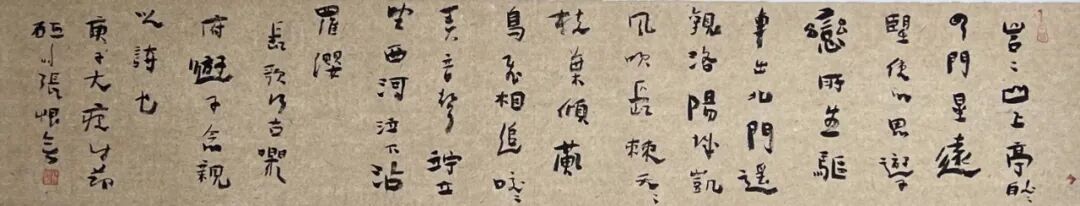 岧〻山上亭皎〻
雲間星遠
望使心思遊子
戀所生驅
車出北門遥
觀洛陽城凱
風吹長棘夭〻
枝葉傾黄
鳥飛相追咬〻
弄音聲竚立
望西河泣下沾
羅纓
長歌行古樂
府遊子念親
以詩也
庚子大疫時節
張恨無